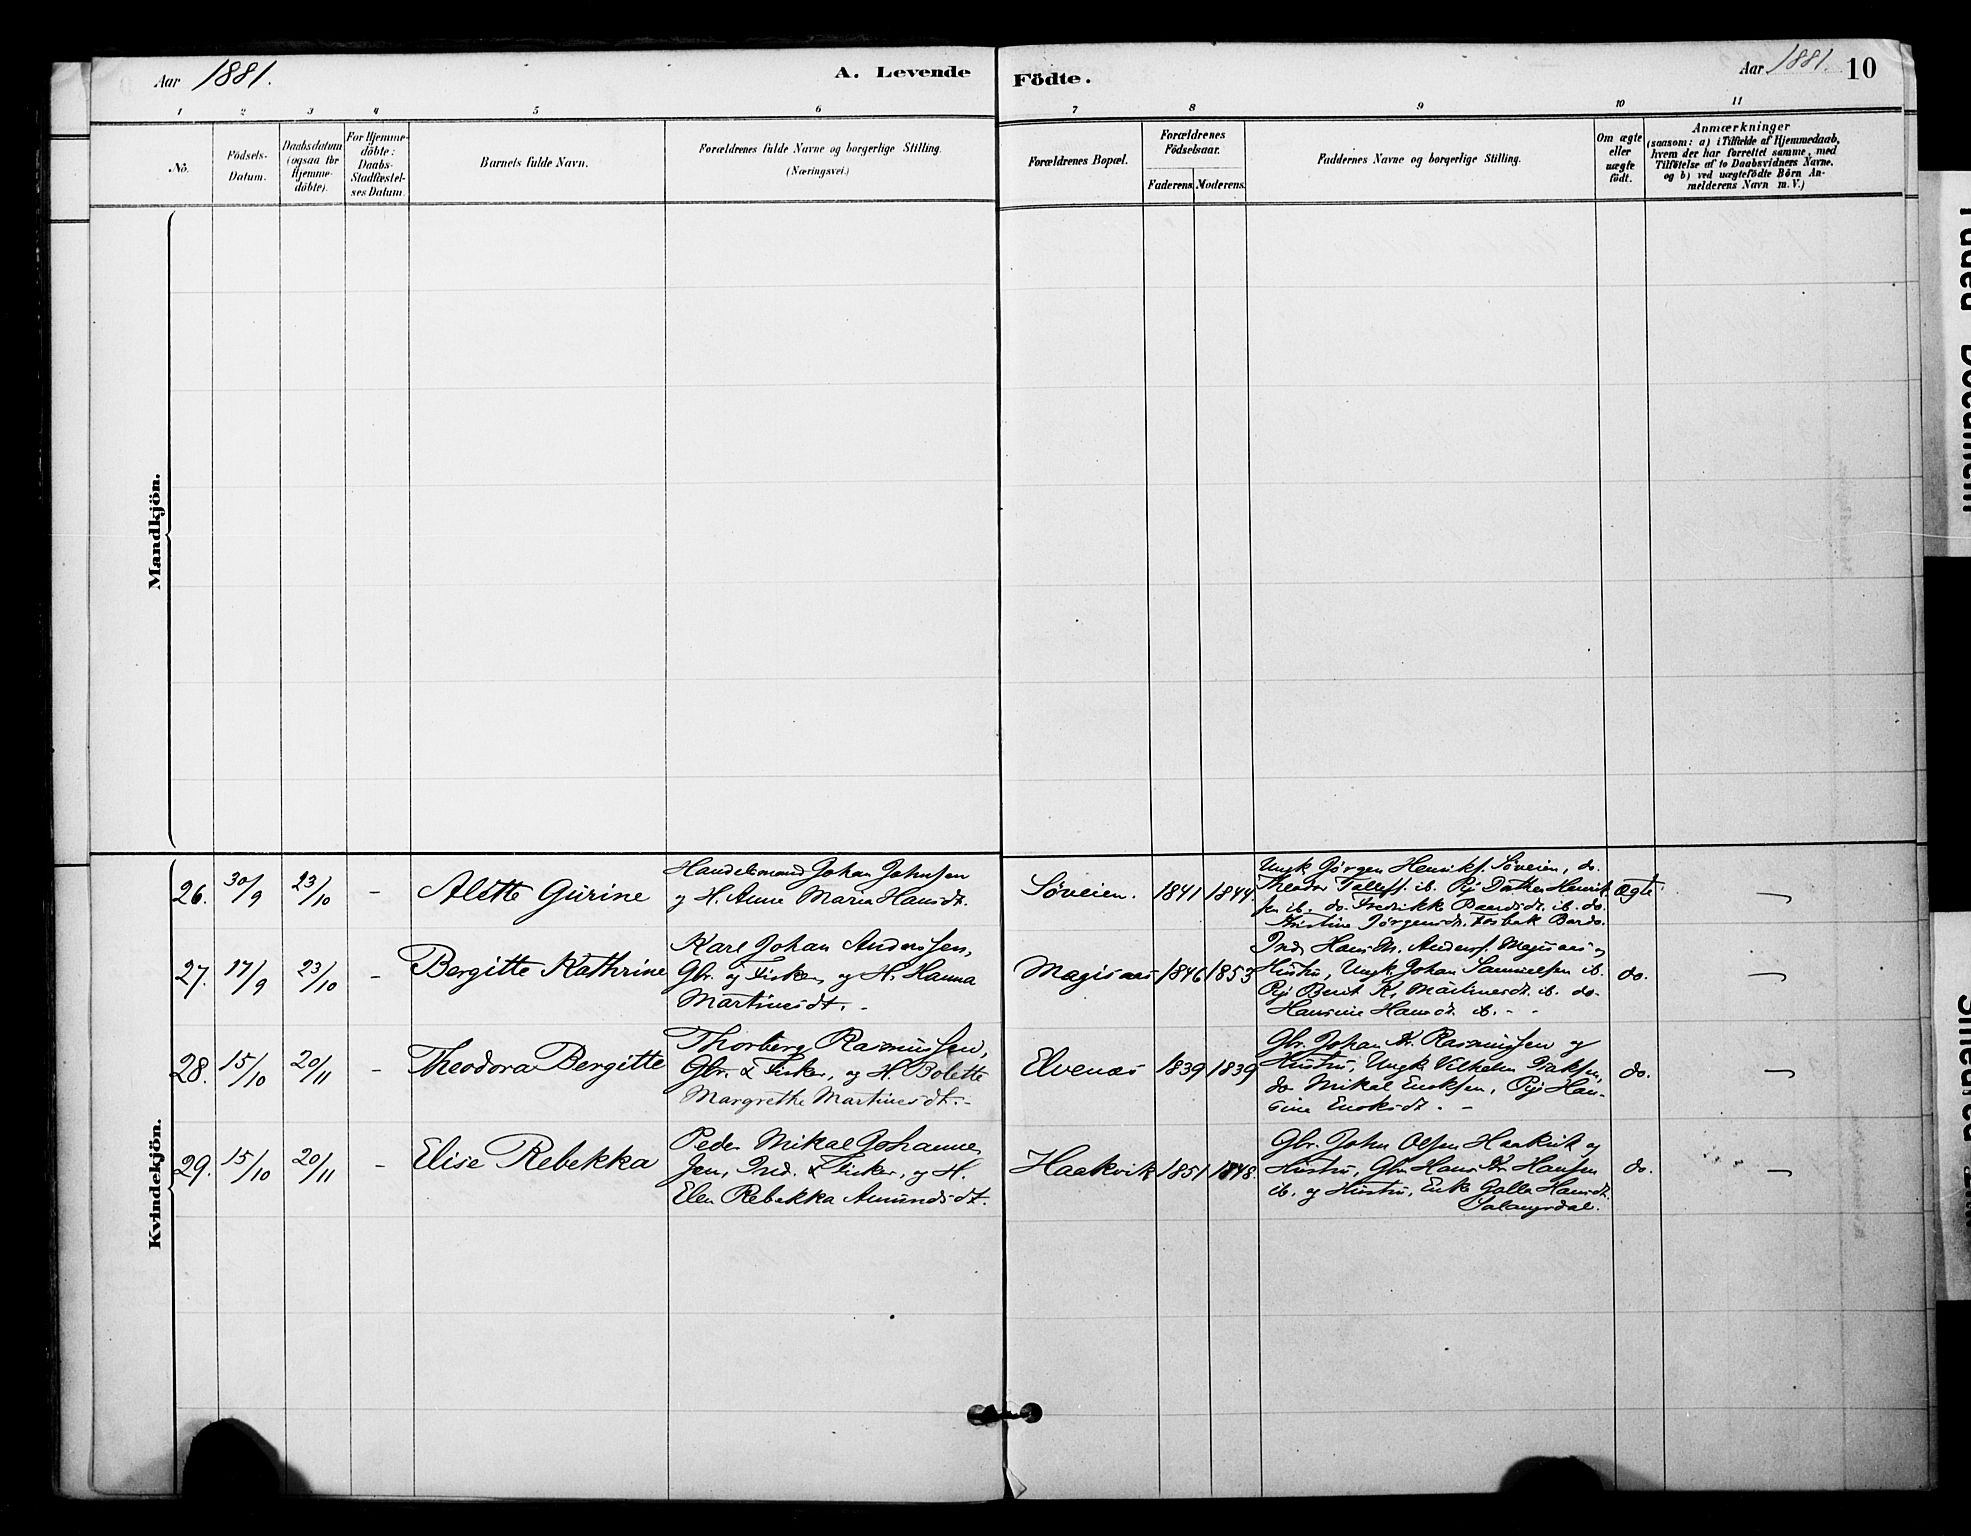 Aar 1881. A. Levende Födte. Aar 1881. 10
1 2 3 4 5 6 7 8 9 10 11
No.
Födsels-
Datum.
Daabsdatum
(ogsaa for
Hjemme-
döbte).
For Hjemme-
döbte:
Daabs-
Stadfæstel-
ses Datum.
Barnets fulde Navn.
Forældrenes fulde Navne og borgerlige Stilling.
(Næringsvei.)
Forældrenes Bopæl.
Forældrenes
Födselsaar.
Faderens. Moderens.
Faddernes Navne og borgerlige Stilling.
Om ægte
eller
uægte
födt.
Anmærkninger
(saasom: a) i Tilfælde af Hjemmedaab,
hvem der har forrettet samme, med
Tilföielse af to Daabsvidners Navne.
og b) ved uægtefödte Börn An-
melderens Navn m. V.)
Mandkjön.
Kvindekjön.
26. 30/9 23/10 - Alette Gurine
Handelsmand Johan Johnsen
og H. Anne Maria Hansdt.
Søveien. 1841 1844.
Ungk Jørgen Henriks. Søveien, do.
Theodor Tollefs. ib. Pij Dorthea Henrik
sen ib. do. Fredrikke Baardsdt. ib. do.
Kristine Jørgensdt. Fosbak Bardo.
ægte. -
27. 17/9 23/10 - Bergitte Kathrine
Karl Johan Anderssen,
Gbr. og Fisker, og H. Hanna
Martinesdt. -
Magisnes 1846 1853
Ind. Hans M. Anders. Magisnes og
Hustru, Ungk Johan Samuelsen ib.
Pij Berit K. Martinesdt. ib. do.
Hansine Hansdt. ib. - -
do. -
28. 15/10 20/11 - Theodora Bergitte
Thorberg Rasmussen,
Gbr. & Fisker, og H. Bolette
Margrethe Martinesdt. -
Elvenæs 1839 1839
Gbr. Johan Kr. Rasmussen og
Hustru, Ungk Vilhelm Isaksen,
do Mikal Enoksen, Pij Han-
sine Enoksdt. -
do. -
29. 15/10 20/11 - Elise Rebekka
Peder Mikal Johanne
sen, Ind. & Fisker, og H.
Elen Rebekka Amundsdt.
Haakvik 1851 1848.
Gbr. John Olsen Haakvik og
Hustru, Gbr Hans Kr. Hansen
ib. og Hustru, Enke Golla Hansdt.
Salangsdal.
do. -